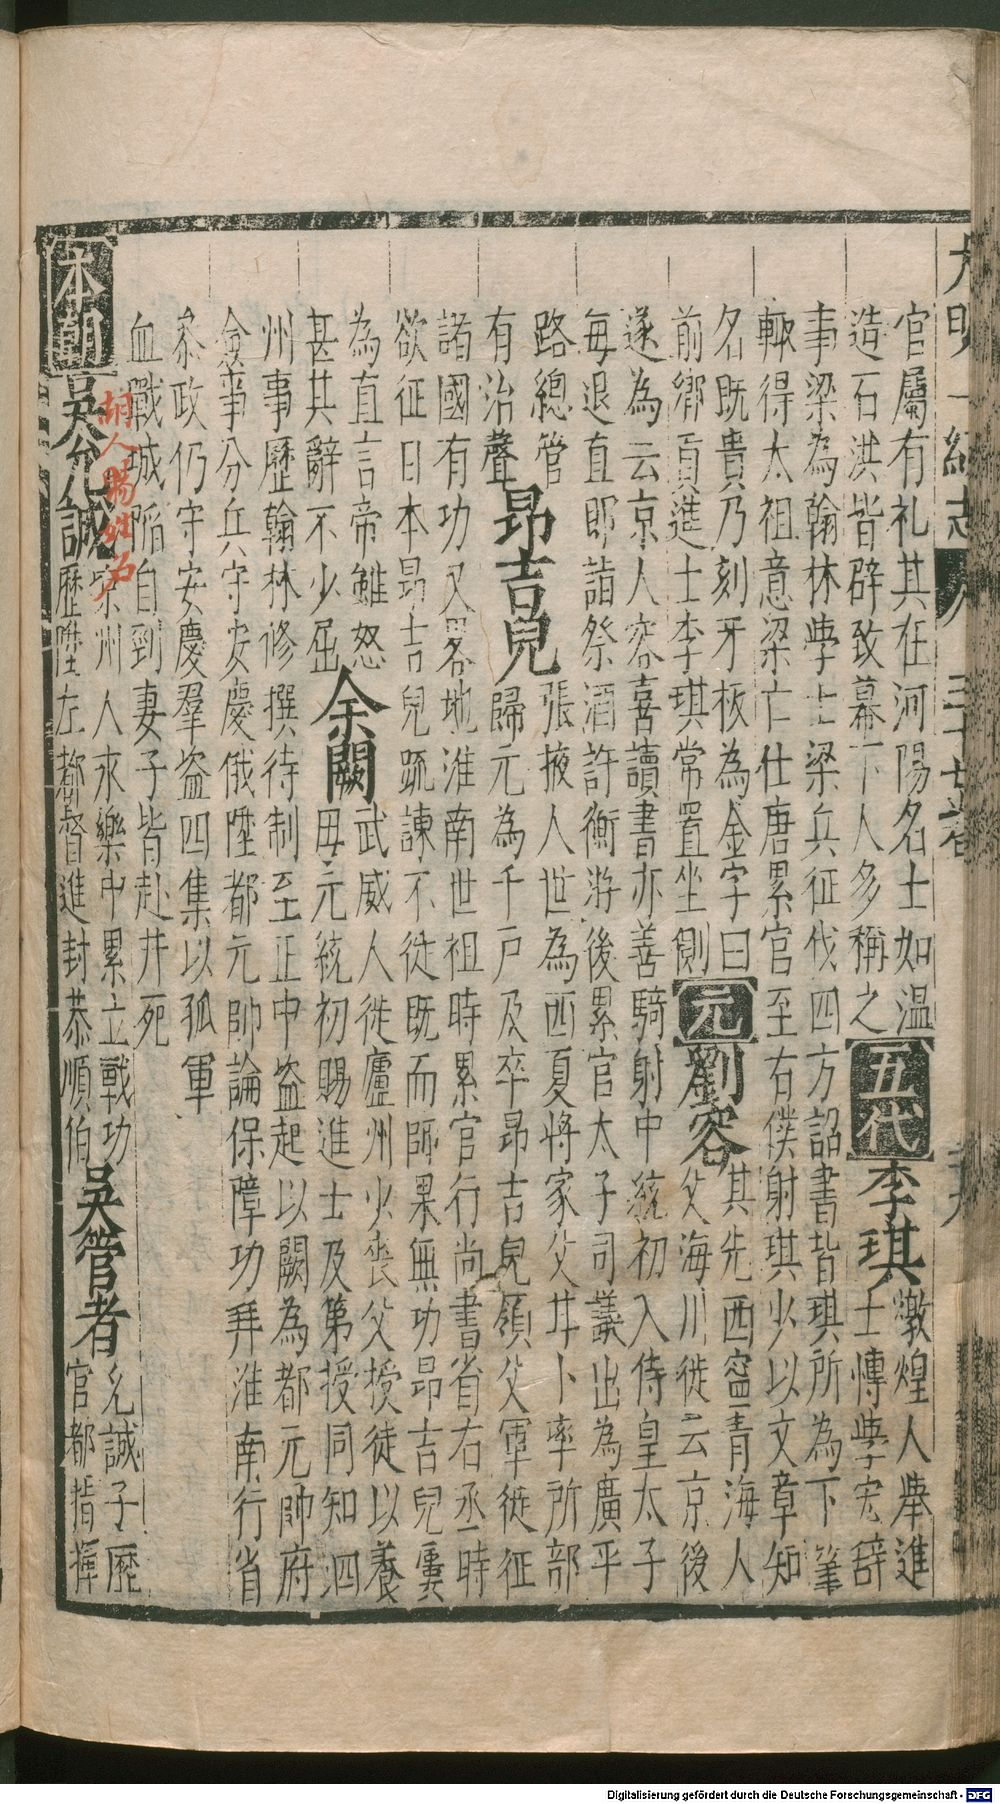 大明一統志 三十七卷
官屬有礼其在河陽名士如温
造石洪皆辟致幕下人多稱之
五代 李琪
燉煌人舉進
士博學宏辭
事梁為翰林學士梁兵征伐四方詔書皆琪所為下筆
輙得太祖意梁亡仕唐累官至右僕射琪少以文章知
名既貴乃刻牙板為金字曰
前鄉貢進士李琪常置坐側
元 劉容
其先西寧青海人
父海川徙云京後
遂為云京人容喜讀書亦善騎射中統初入侍皇太子
每退直即詣祭酒許衡游後累官太子司議出為廣平
路總管
有治聲
昂吉兒
張掖人世為西夏將家父甘卜率所部
歸元為千戶及卒昂吉兒領父軍從征
諸國有功又畧地淮南世祖時累官行尚書省右丞時
欲征日本昂吉兒疏諫不從既而師果無功昂吉兒屢
為直言帝雖怒
甚其辭不少屈
余闕
武威人徙廬州少喪父授徒以養
母元統初賜進士及第授同知泗
州事歷翰林修撰待制至正中盗起以闕為都元帥府
僉事分兵守安慶俄陞都元帥論保障功拜淮南行省
叅政仍守安慶羣盗四集以孤軍
血戰城陷自剄妻子皆赴井死
胡人賜姓名
本朝 吳允誠
涼州人永樂中累立戰功
歷陞左都督進封恭順伯
吳管者
允誠子歷
官都指揮
Digitalisierung gefördert durch die Deutsche Forschungsgemeinschaft - DFG